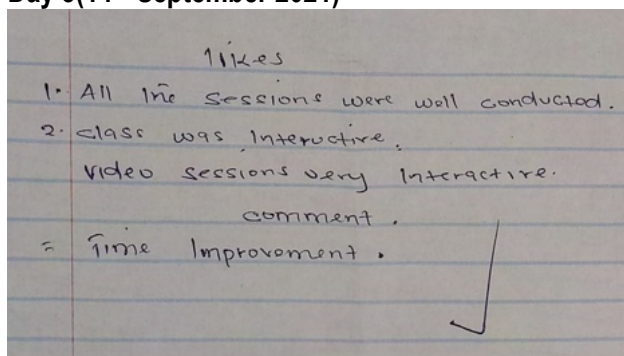 likes
1. All the sessions were well conducted.
2. class was Interactive.
video sessions very Interactive.
comment.
= Time Improvement.